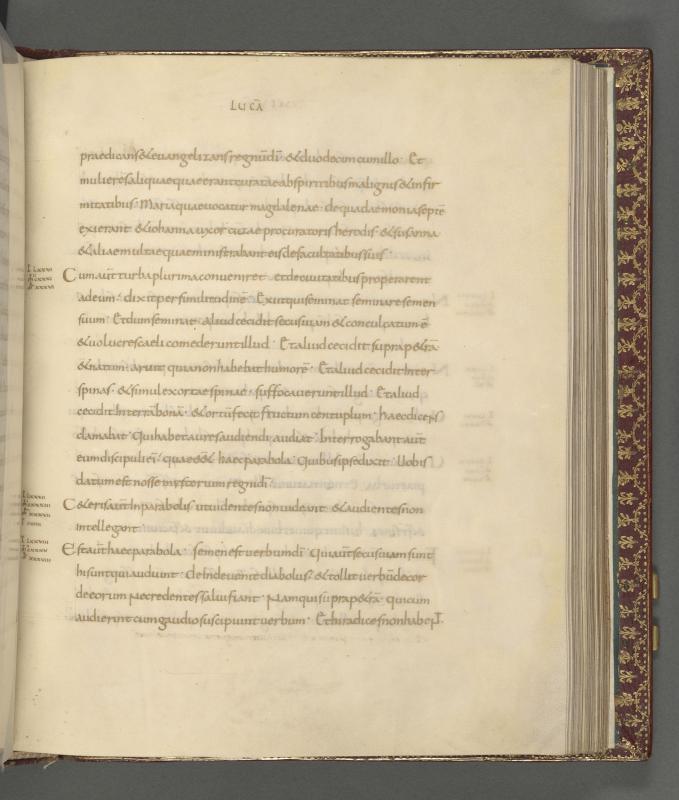 LUCĀ
praedicans & euangelizans regnum dī · & duodecim cum illo · Et
mulieres aliquae quae erant curatae ab spiritibus malignis & infir
mitatibus · Maria quae uocatur magdalenae · de qua daemonia septē
exierant & iohanna uxor cuzae procuratoris herodis · & susanna
& aliae multae quae ministrabant eis de facultatibus suis ·
Cum aūt turba plurima conueniret et de ciuitatibus properarent
ad eum · dixit per similitudinē · Exiit qui seminat seminare semen
suum · Et dum seminat · aliud cecidit secus uiam & conculcatum ē
& uolucres caeli comederunt illud · Et aliud cecidit supra p&rā
& natum · aruit quia non habebat humorē · Et aliud cecidit inter
spinas · & simul exortae spinae · suffocauerunt illud · Et aliud
cecidit in terrā bonā · & ortū fecit fructum centuplum · haec dicens
clamabat · Qui habet aures audiendi audiat · Interrogabant aūt
eum discipuli eius · quae ess& haec parabola · Quibus ipse dixit · Uobis
datum est nosse mysterium regni dī
Ceteris aūt in parabolis · ut uidentes non uideant · & audientes non
intellegant
Est aūt haec parabola · semen est uerbum dī · Qui aūt secus uiam sunt
hi sunt qui audiunt · deinde uenit diabolus · & tollit uerbū de cor
de eorum ne credentes salui fiant · Nam qui supra p&rā · qui cum
audierint cum gaudio suscipiunt uerbum · Et hi radices non habent